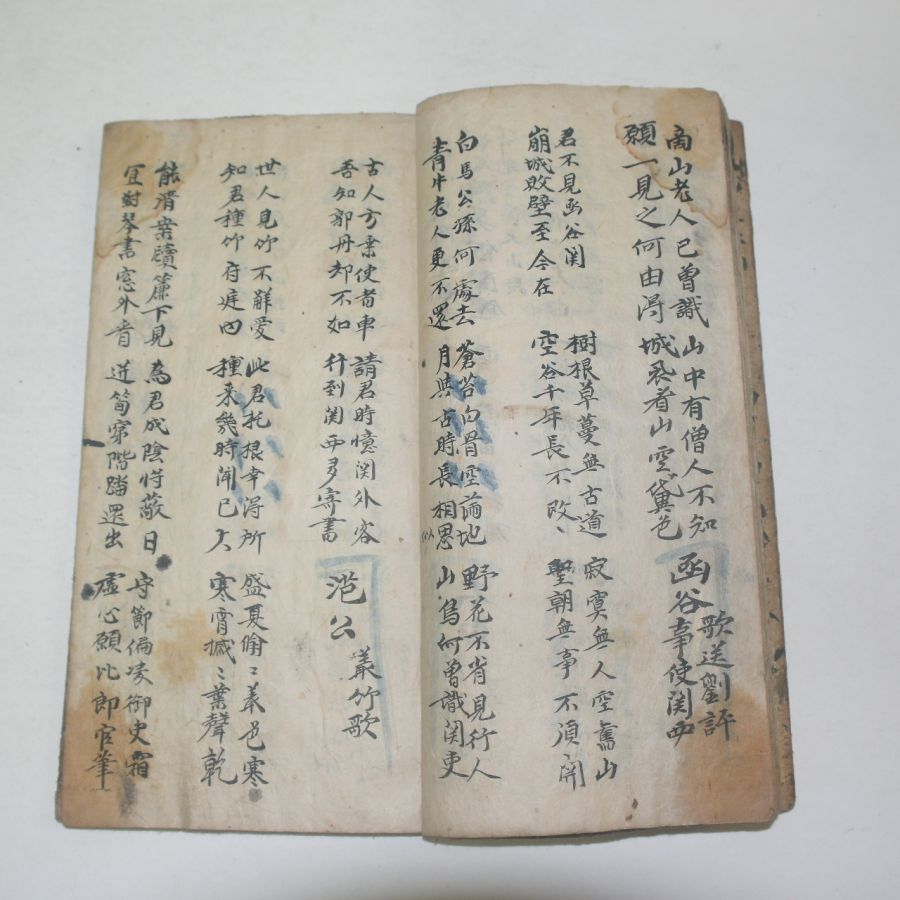 商山老人已曾識
願一見之何由得
山中有僧人不知
城裏看山空黛色
函谷
歌送劉評
事使関西
君不見函谷関
崩城敗壁至今在
樹根草蔓無古道
空谷千年長不改
寂寞無人空舊山
聖朝無事不須開
白馬公孫何處去
青牛老人更不還
蒼苔白骨空滿地
月與古時長相思
野花不省見行人
山鳥何曾識関吏
古人方乗使者車
吾知郭丹却不如
請君時憶関外客
行到関西多寄書
范公
叢竹歌
世人見竹不解愛
知君種竹府庭内
此君托根幸得所
種来幾時聞已大
盛夏偹〻叢色寒
寒宵摵〻葉聲乾
能清案牘簾下見
宜對琴書窓外看
為君成陰将蔽日
迸笋穿階踏還出
守節偏凌御史霜
虛心願比郎官筆